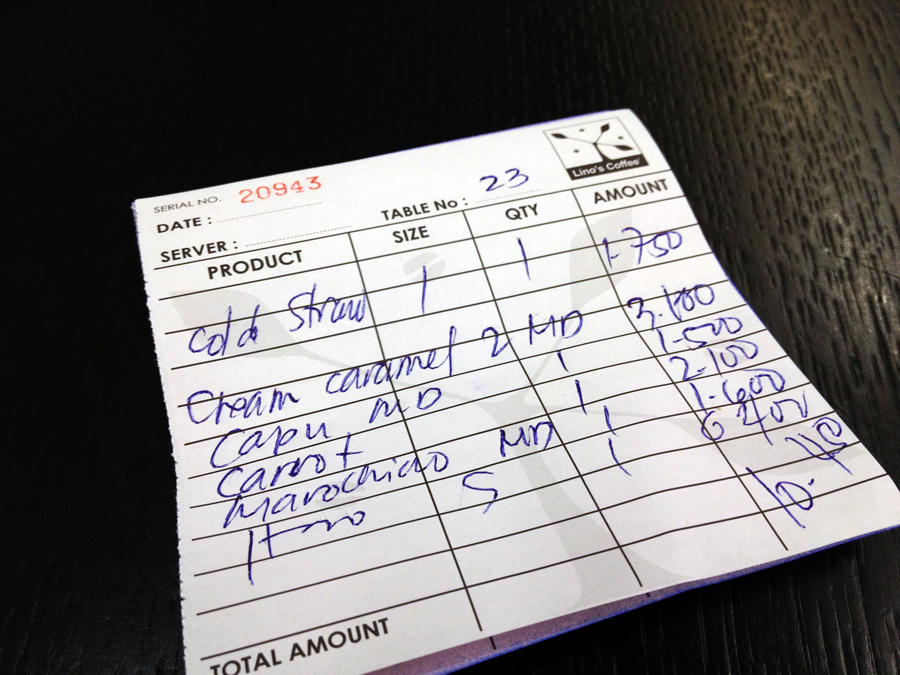 SERIAL NO. 20943
Lino's Coffee
DATE :
TABLE No : 23
SERVER :
PRODUCT SIZE QTY AMOUNT
Cold Straw 1 1 1-750
Cream caramel 2 MD 3.100
Capu MD 1 1-500
Carrot 1 2-100
Marochino MD 1 1-600
S 1 400
TOTAL AMOUNT